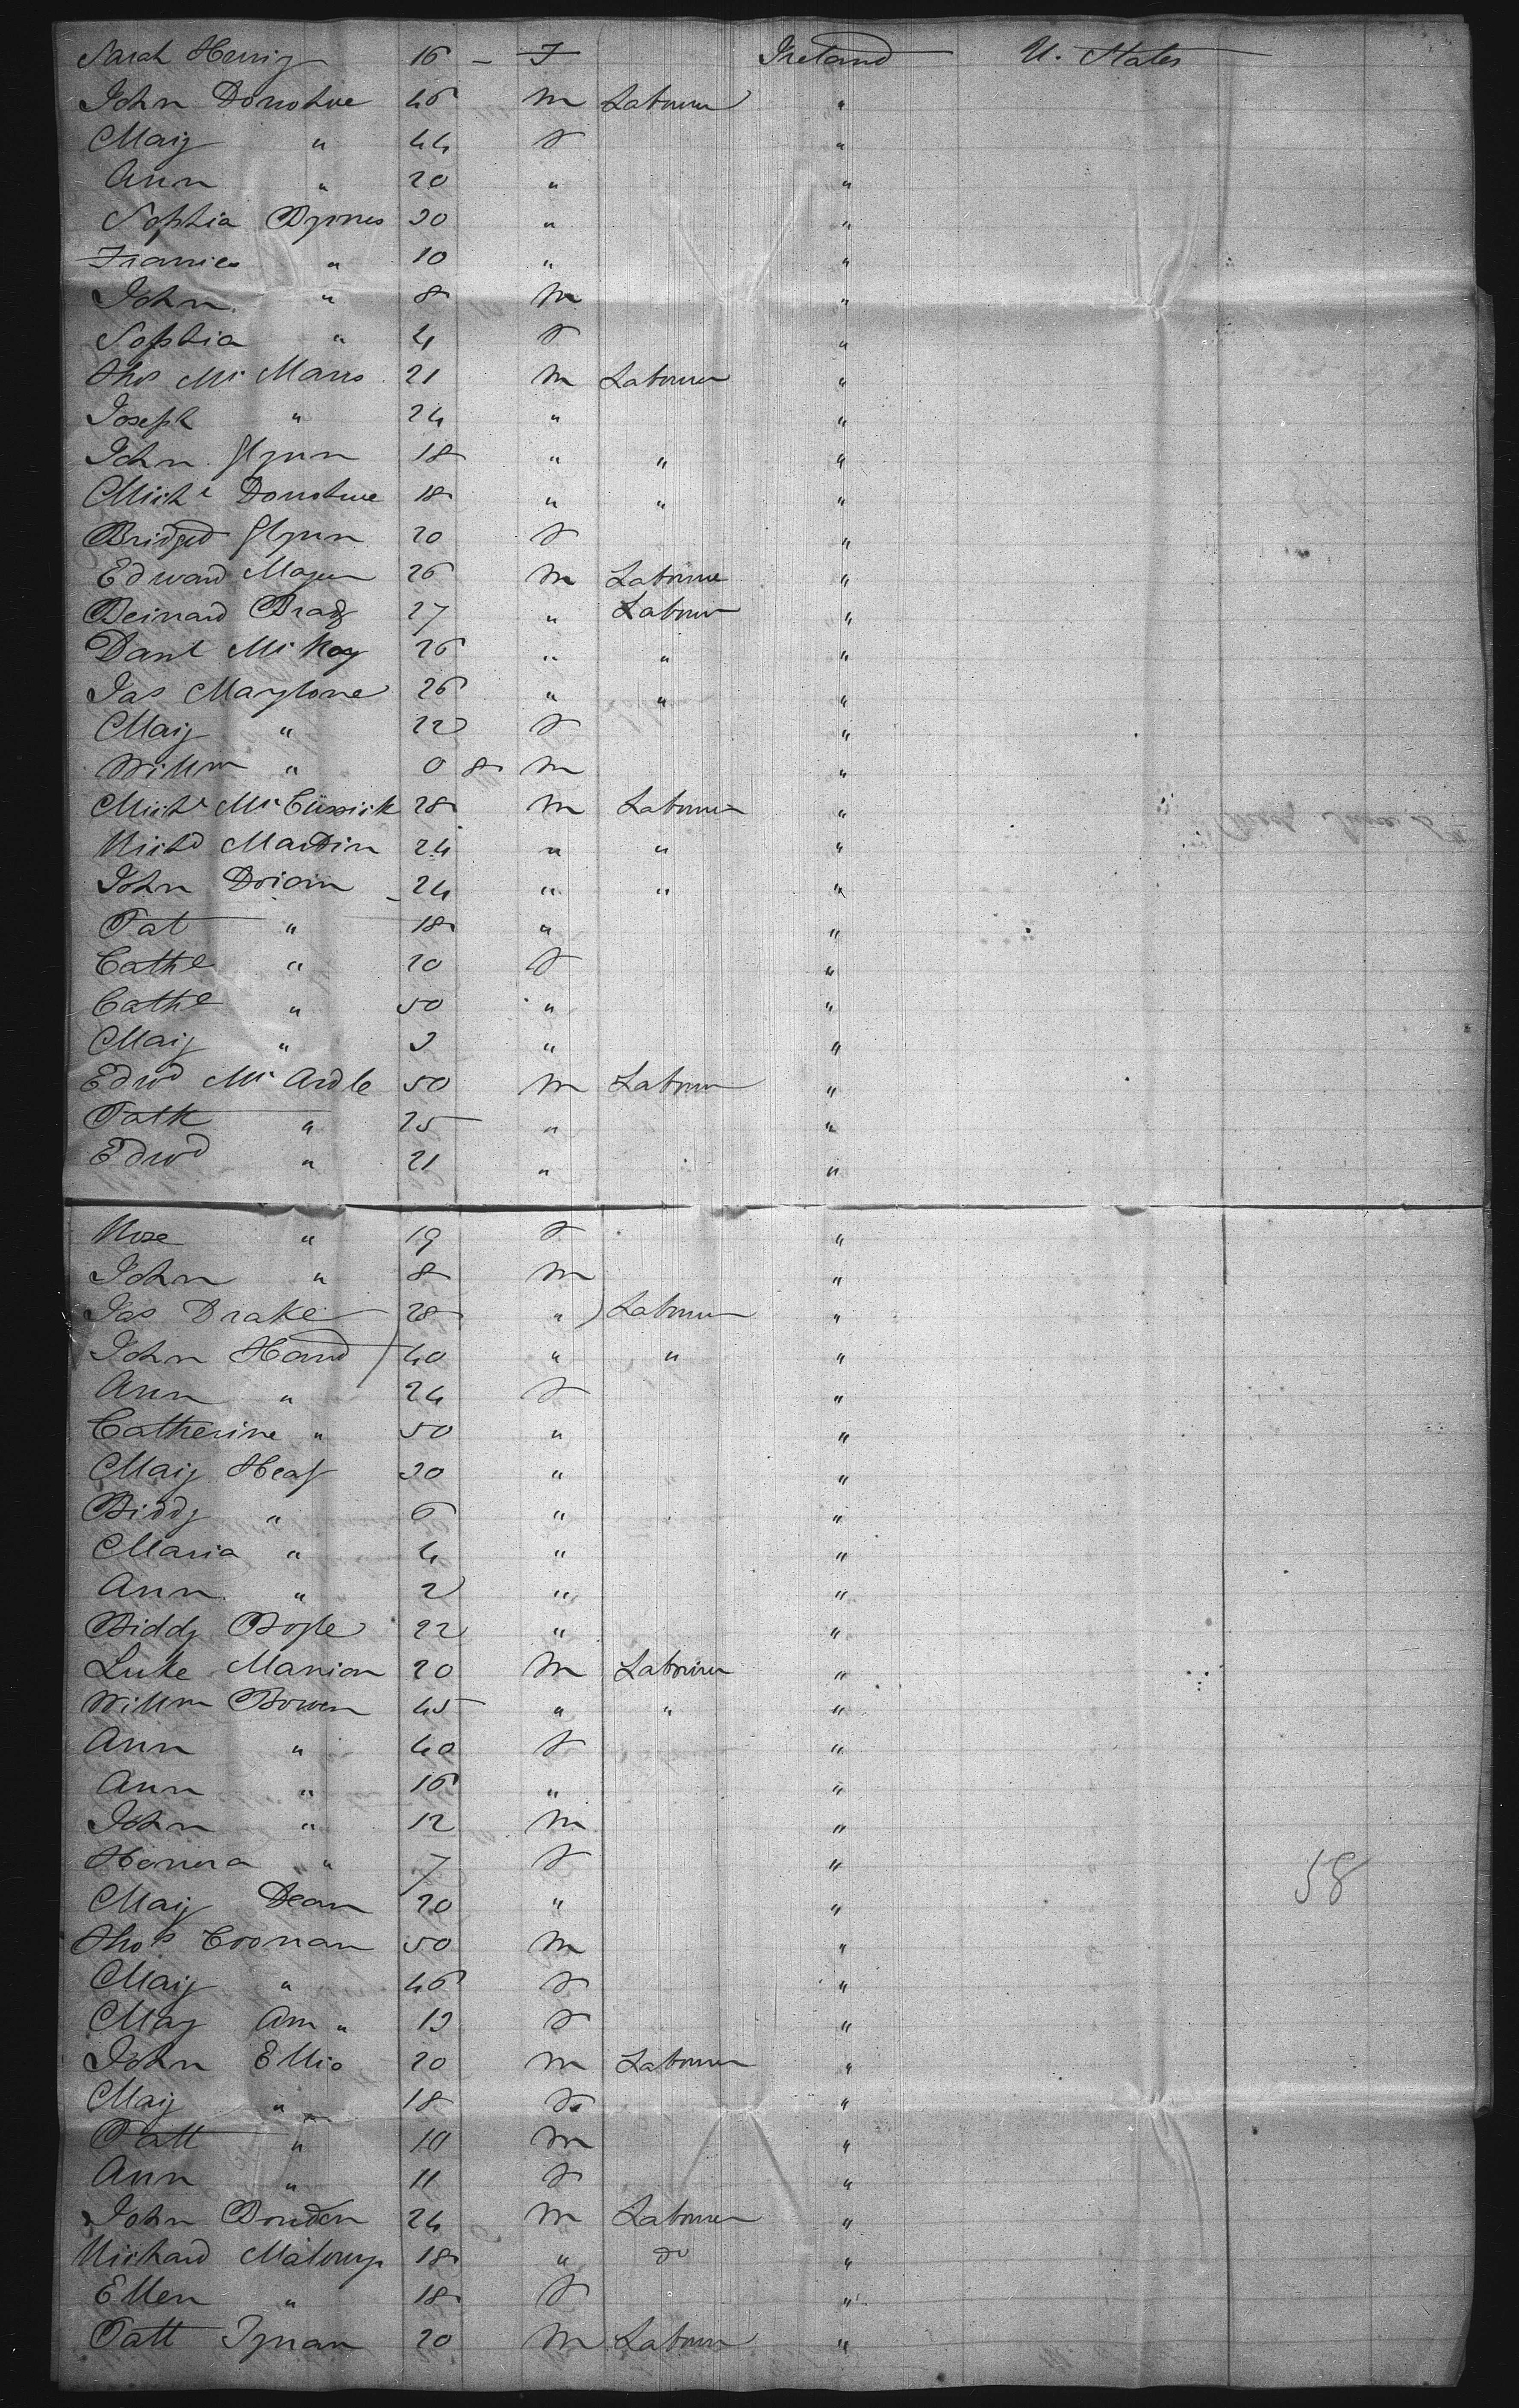 Sarah Henry 16 - F Ireland U. States
John Donohue 46 M Labourer "
Mary " 44 F "
Ann " 20 " "
Sophia Byrnes 30 " "
Frances " 10 " "
John " 8 M "
Sophia " 4 F "
Thos Mc Manus 21 M Labourer "
Joseph " 24 " "
John Glynn 18 " " "
Michl Donohue 18 " " "
Bridget Glynn 20 F "
Edward 26 M Labourer "
Bernard Brady 27 " Labourer "
Danl Mc Kay 26 " " "
Jas 26 " " "
Mary " 22 F "
Willm " 0 8 M "
Michl Mc Cussick 28 M Labourer "
Richd Martin 24 " " "
John 24 " " "
Pat " 18 " "
Cathe " 20 F "
Cathe " 50 " "
Mary " 3 " "
Edwd Mc Ardle 50 M Labourer "
Patk " 25 " "
Edwd " 21 " "
Rose " 19 F "
John " 8 M "
Jas Drake 28 " Labourer "
John Hand 40 " " "
Ann " 24 F "
Catherine " 50 " "
Mary 30 " "
Biddy " 6 " "
Maria " 4 " "
Ann " 2 " "
Biddy Boyle 22 " "
Luke Manion 20 M Labourer "
Willm Bowen 45 " " "
Ann " 40 F "
Ann " 16 " "
John " 12 M "
Honora " 7 F "
Mary Dean 20 " " 58
Thos Coonan 50 M "
Mary " 46 F "
Mary Ann " 13 F "
John Ellis 20 M Labourer "
Mary " 18 F "
Patt " 10 M "
Ann " 11 F "
John 24 M Labourer "
Richard 18 " do "
Ellen " 18 F "
Patt Tynan 20 M Labourer "